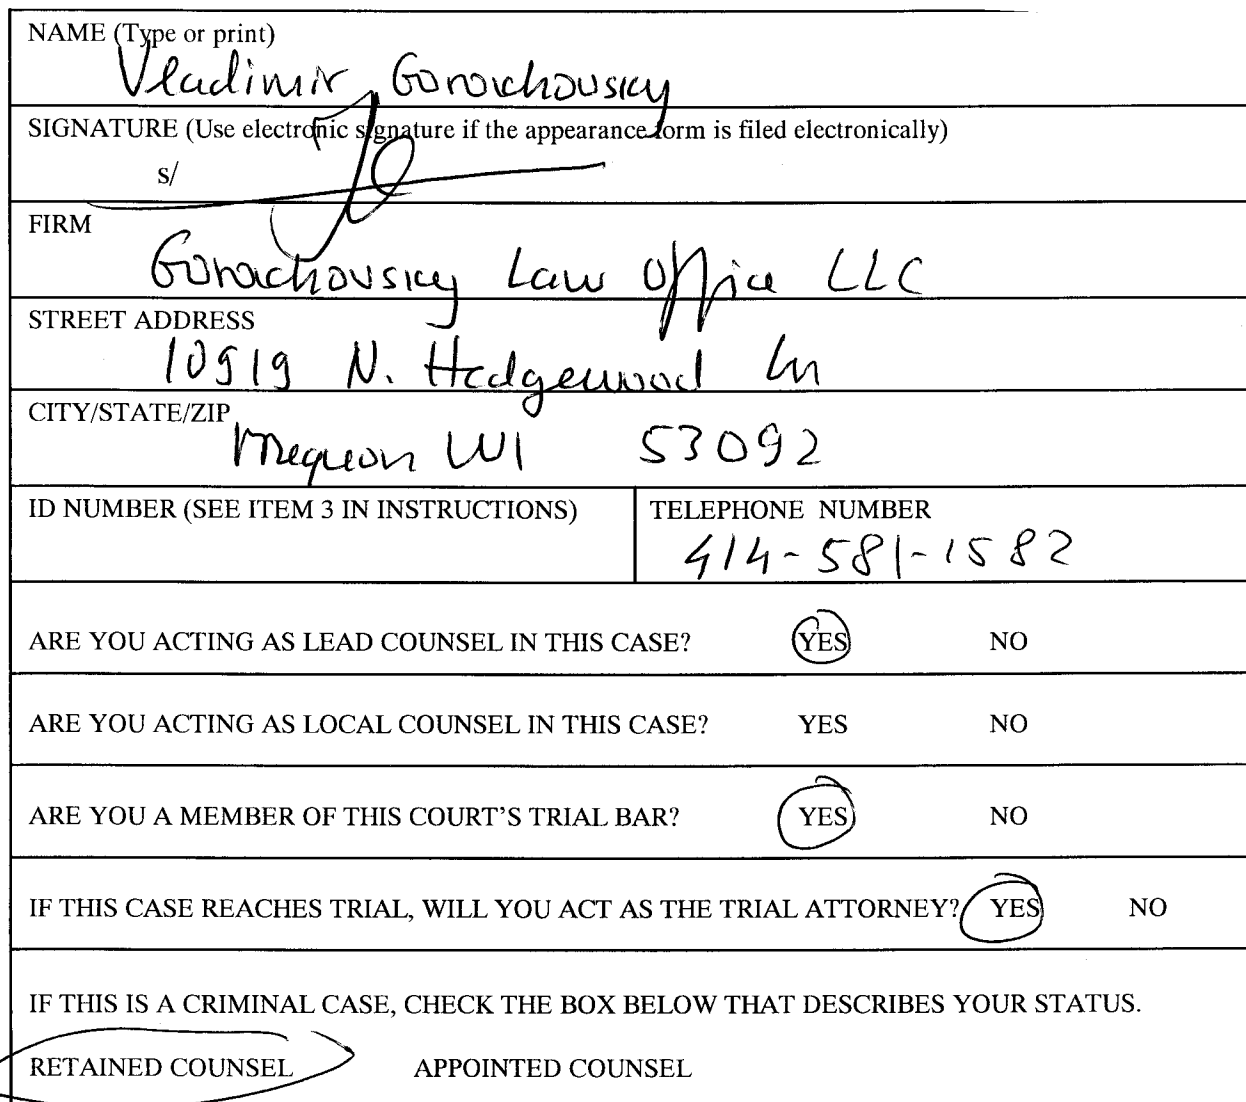 NAME (Type or print)
Vladimir Gorokhovsky
SIGNATURE (Use electronic signature if the appearance form is filed electronically)
s/
FIRM
Gorokhovsky Law Office LLC
STREET ADDRESS
10919 N. Hedgewood Ln
CITY/STATE/ZIP
Mequon WI 53092
ID NUMBER (SEE ITEM 3 IN INSTRUCTIONS) TELEPHONE NUMBER
414-581-1582
ARE YOU ACTING AS LEAD COUNSEL IN THIS CASE? YES NO
ARE YOU ACTING AS LOCAL COUNSEL IN THIS CASE? YES NO
ARE YOU A MEMBER OF THIS COURT'S TRIAL BAR? YES NO
IF THIS CASE REACHES TRIAL, WILL YOU ACT AS THE TRIAL ATTORNEY? YES NO
IF THIS IS A CRIMINAL CASE, CHECK THE BOX BELOW THAT DESCRIBES YOUR STATUS.
RETAINED COUNSEL APPOINTED COUNSEL